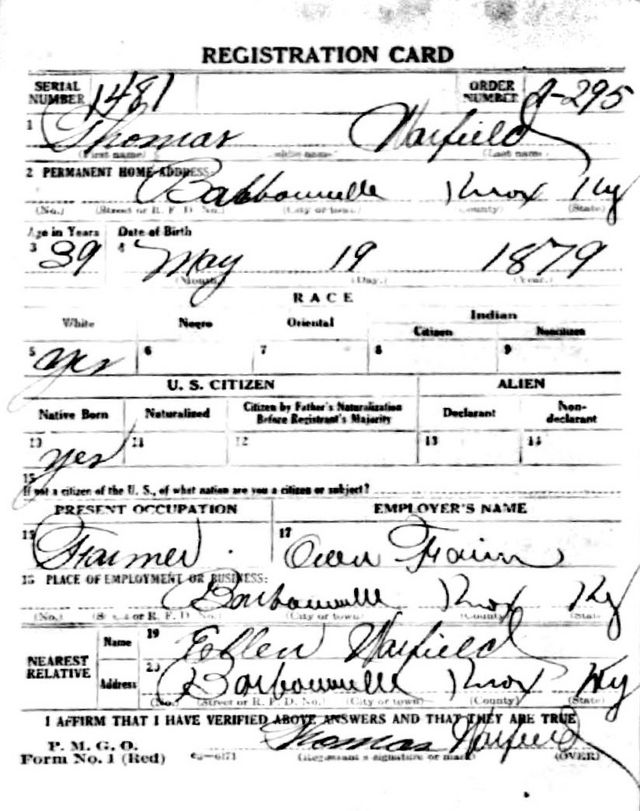 REGISTRATION CARD
SERIAL NUMBER 1481 ORDER NUMBER A-295
1 Thomas Warfield
(First name) (Last name)
2 PERMANENT HOME ADDRESS:
Barbourville Knox Ky
(No.) (Street or R. F. D. No.) (City or town) (County) (State)
Age in Years Date of Birth
3 39 4 May 19 1879
(Month.) (Day.) (Year.)
RACE
White Negro Oriental Indian
Citizen Noncitizen
5 yes 6 7 8 9
U. S. CITIZEN ALIEN
Native Born Naturalized Citizen by Father's Naturalization Before Registrant's Majority Declarant Non-declarant
10 yes 11 12 13 14
15
If not a citizen of the U. S., of what nation are you a citizen or subject?
PRESENT OCCUPATION EMPLOYER'S NAME
16 Farmer 17 Own Farm
18 PLACE OF EMPLOYMENT OR BUSINESS:
Barbourville Knox Ky
(No.) (Street or R. F. D. No.) (City or town) (County) (State)
NEAREST RELATIVE Name 19 Ellen Warfield
Address 20 Barbourville Knox Ky
(No.) (Street or R. F. D. No.) (City or town) (County) (State)
I AFFIRM THAT I HAVE VERIFIED ABOVE ANSWERS AND THAT THEY ARE TRUE
P. M. G. O.
Form No. 1 (Red) Thomas Warfield
(Registrant's signature or mark) (OVER)